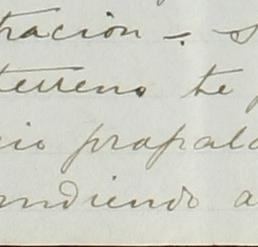 tracion = s
terreno te p
cio propala
undiendo a